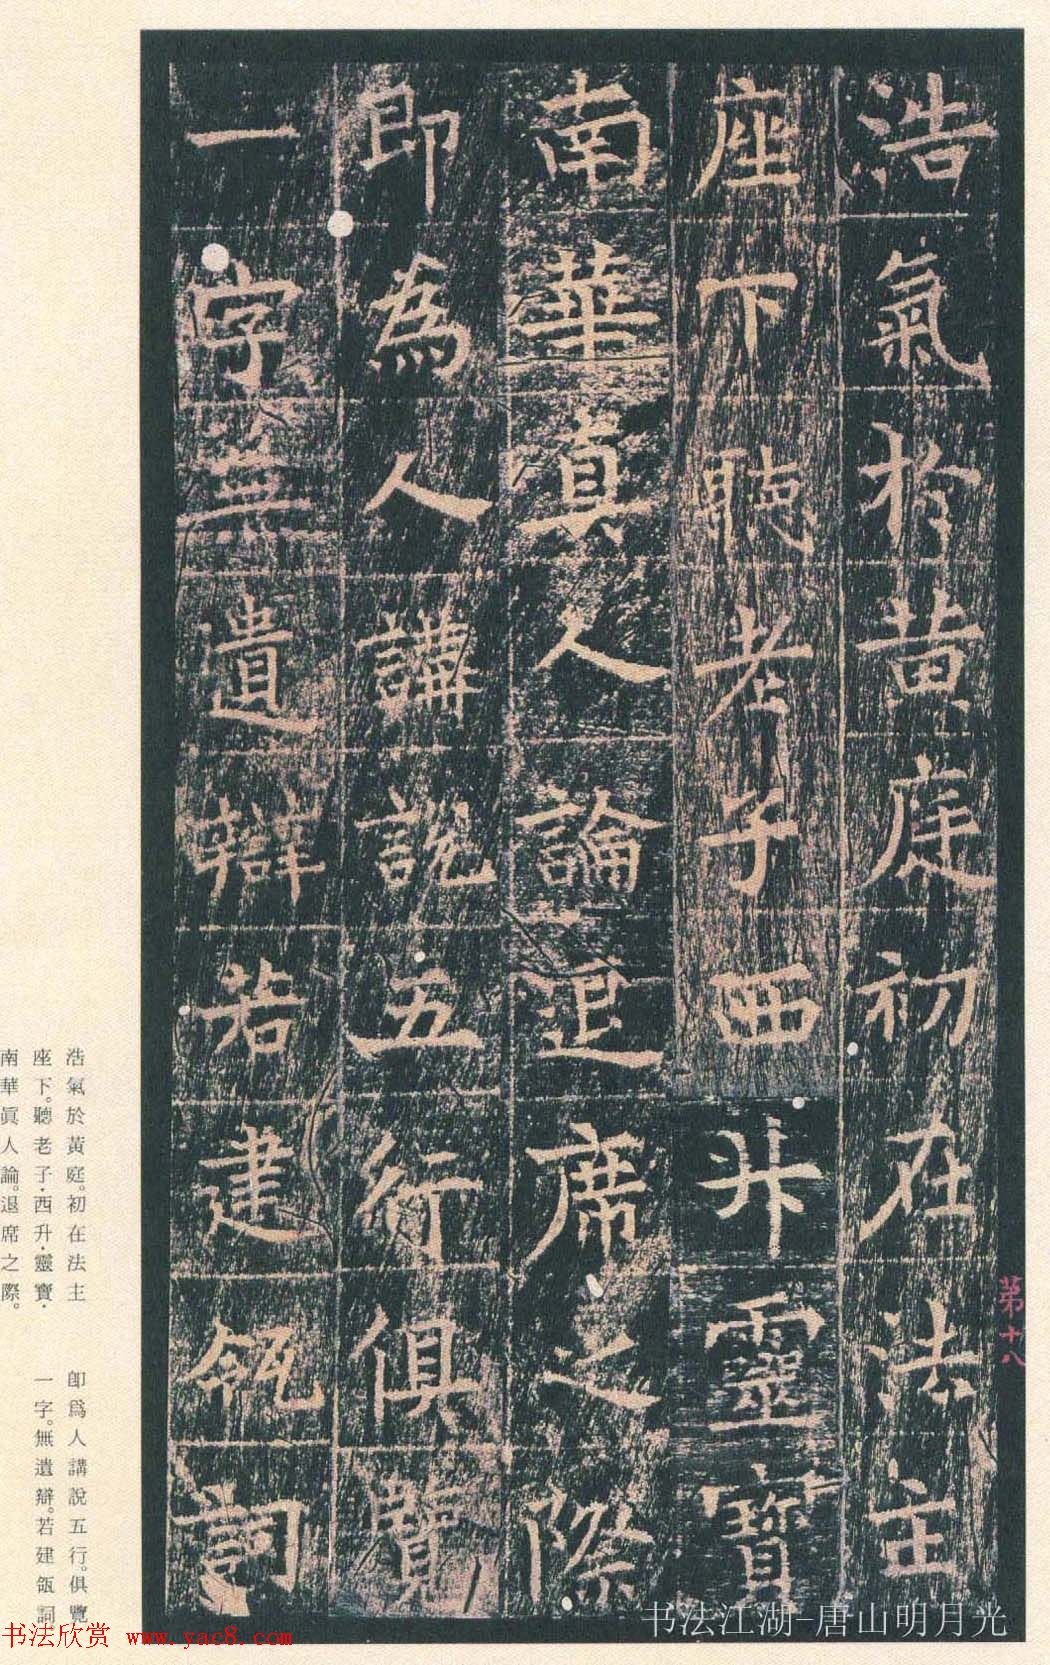 浩氣於黃庭初在法主
座下聽老子西昇靈寶
南華真人論退席之際
即為人講說五行俱覽
一字無遺辯若建瓴詞
第十八
浩氣於黃庭。初在法主
座下。聽老子·西升·靈寶·
南華眞人論。退席之際。
卽爲人講說五行。俱覽
一字。無遺辯。若建瓴詞。
书法江湖-唐山明月光
书法欣赏 www.yac8.com